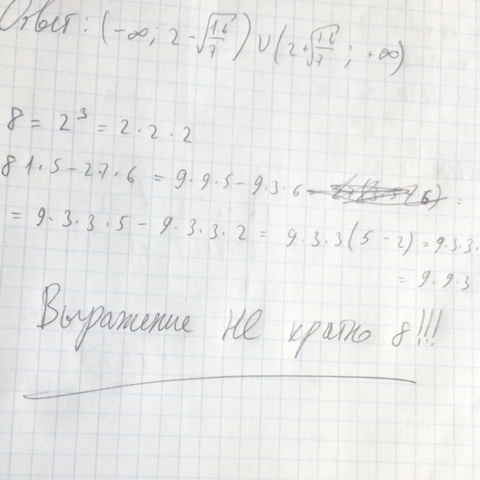 Ответ: (-∞; 2-√(16/7)) ∪ (2+√(16/7); +∞)
8 = 2³ = 2·2·2
81·5-27·6 = 9·9·5-9·3·6 =
= 9·3·3·5 - 9·3·3·2 = 9·3·3(5-2) = 9·3·3·
= 9·9·3
Выражение не кратно 8!!!